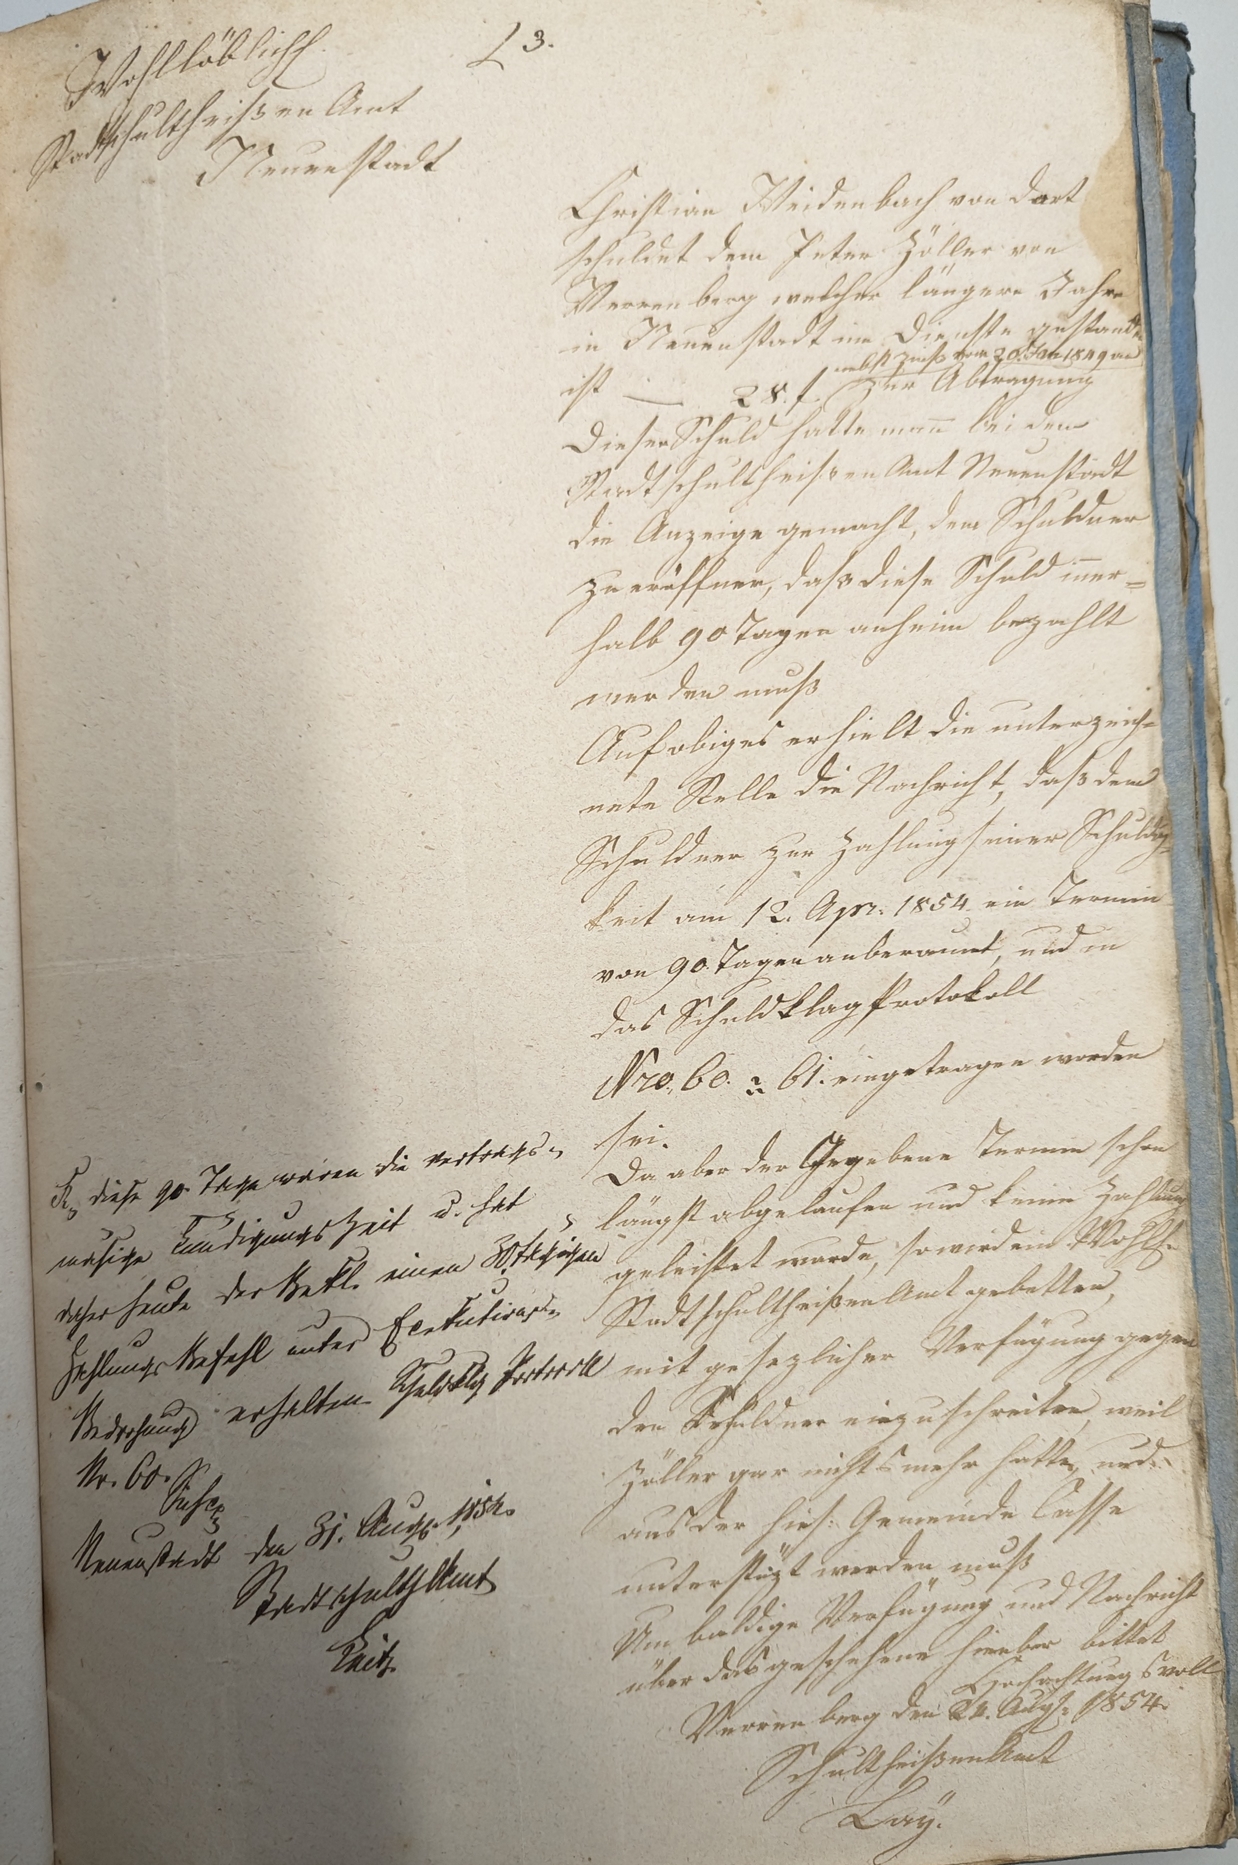 Wohllöblich.
Stadtschultheißen Amt
Neuenstadt
3.
Christian Weidenbach von dort
schuldet dem Peter Zöller von
Verrenberg welcher längere Jahre
in Neuenstadt im Dienste gestanden
nebst Zinß vom 20. Jan 1849 an
ist — 28. f. Zur Abtragung
dieser Schuld hatte man bei dem
Stadtschultheißen Amt Neuenstadt
die Anzeige gemacht, dem Schuldner
zu eröffnen, daß diese Schuld inner=
halb 90 Tagen anheim bezahlt
werden muß
Auf obiges erhielt die unterzeich=
nete Stelle die Nachricht, daß dem
Schuldner zur Zahlung seiner Schuldig=
keit am 12. Apr. 1854 ein Termin
von 90. Tagen anberaumt, und in
das Schuldklag Protokoll
Nro. 60. 61. eingetragen worden
sei.
Da aber der Gegebene Termin schon
längst abgelaufen und keine Zahlung
geleistet wurde, so wird ein Wohll.
Stadtschultheißen Amt gebetten,
mit gesezlicher Verfügung gegen
den Schuldner einzuschreiten, weil
Zöller gar nichts mehr hatte, und
aus der hies: Gemeinde Casse
unterstüzt werden muß
Um baldige Verfügung und Nachricht
über das geschehene hierüber bittet
Hochachtungsvoll
Verrenberg den 24. Augst. 1854.
Schultheißen Amt
Lay.
diese 90 Tage waren die vertrags=
mäsige Kündigungs Zeit u. hat
daher heute der Bekl. einen 30 tägigen
Zahlungs Befehl unter Exekutions=
Bedrohung erhalten Schuldklag Protocoll
Nr. 60.
Neuenstadt den 31. Aug. 1854.
Stadtschulth Amt